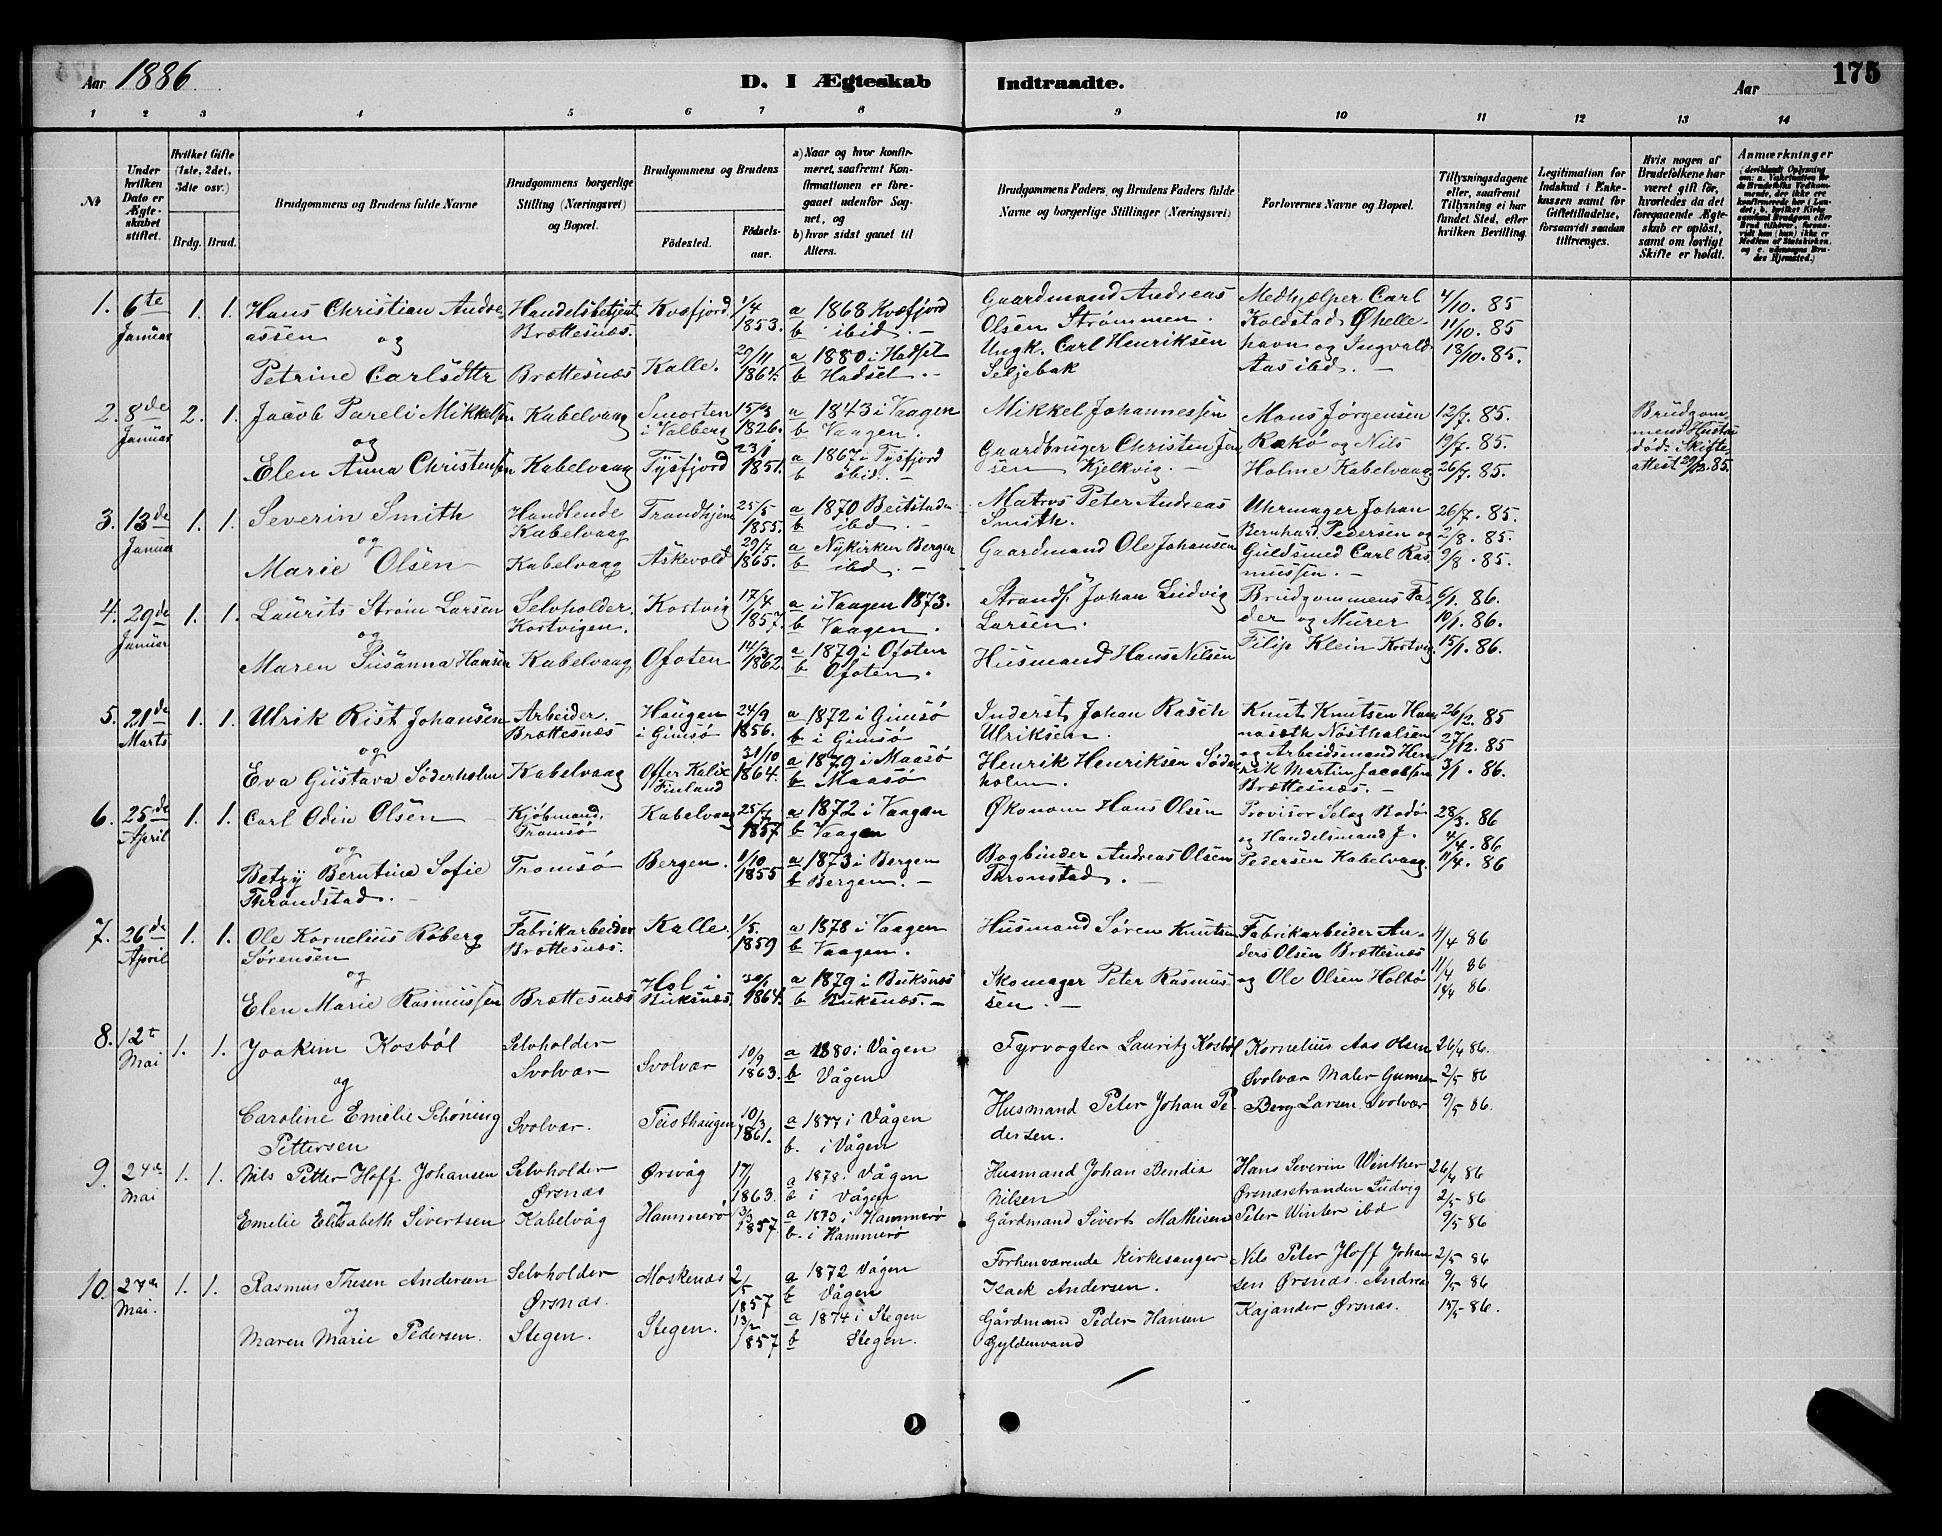 Aar 1886
D. I Ægteskab Indtraadte.
Aar
175
1 2 3 4 5 6 7 8 9 10 11 12 13 14
No
Under hvilken Dato er Ægteskabet stiftet.
Hvilket Gifte (1ste, 2det, 3die osv.)
Brdg. Brud.
Brudgommens og Brudens fulde Navne
Brudgommens borgerlige Stilling (Næringsvei) og Bopæl.
Brudgommens og Brudens
Fødested.
Fødselsaar.
a) Naar og hvor konfirmeret, saafremt Konfirmationen er foregaaet udenfor Sognet, og
b) hvor sidst gaaet til Alters.
Brudgommens Faders, og Brudens Faders fulde Navne og borgerlige Stillinger (Næringsvei)
Forlovernes Navne og Bopæl.
Tillysningsdagene eller, saafremt Tillysning ei har fundet Sted, efter hvilken Bevilling.
Legitimation for Indskud i Enkekassen samt for Giftetilladelse, forsaavidt saadan tiltrænges.
Hvis nogen af Brudefolkene har været gift før, hvorledes da det foregaaende Ægteskab er opløst, samt om lovligt Skifte er holdt.
Anmærkninger
1. 6te Januar 1. 1. Hans Christian Andreassen Handelsbetjent Brættesnæs Kvæfjord 1/4 1853. a 1868 Kvæfjord b ibid. Gaardmand Andreas Olsen Strømmen. Medhjælper Carl Koldstad Ø helle- 4/10. 85
og
Petrine Carlsdttr Brættesnæs Kalle. 29/11 1864. a 1880 i Hadsel b Hadsel. Ungk. Carl Henriksen Seljebak havn og Ingvald Aas ibd. 11/10. 85 18/10. 85.
2. 8de Januar 2. 1. Jacob Pareli Mikkelsen Kabelvaag Smorten i Valberg 15/3 1826. a 1843 i Vaagen b Vaagen. Mikkel Johannessen Mons Jørgensen 12/7. 85. Brudgommens Hustru død. Skifteattest 29/12 85.
og
Elen Anna Christensen Kabelvaag Tysfjord 23/1 1851. a 1867 i Tysfjord b ibid. Gaardbruger Christen Jensen Kjelkvig. Rækø og Nils Holme Kabelvaag 19/7. 85. 26/7. 85.
3. 13de Januar 1. 1. Severin Smith Handlende Kabelvaag Trondhjem 25/5 1855. a 1870 Beitstaden b ibd. Matros Peter Andreas Smith. Uhrmager Johan Bernhard Pedersen og 26/7. 85. 2/8. 85.
og
Marie Olsen Kabelvaag Askevold 29/7 1865. a Nykirken Bergen b ibd. Gaardmand Ole Johansen Guldsmed Carl Rasmussen. 9/8. 85.
4. 29de Januar 1. 1. Laurits Strøm Larsen Selvholder. Kortvigen. Kortvig 17/4 1857. a i Vaagen 1873. b Vaagen. Strands. Johan Ludvig Larsen. Brudgommens Fader og Murer 6/1. 86. 10/1. 86.
og
Maren Susanna Hansen Kabelvaag Ofoten 14/3 1862. a 1879 i Ofoten b Ofoten. Husmand Hans Nilsen Filip Klein Kortvig. 15/1. 86.
5. 21de Marts 1. 1. Ulrik Rist Johansen Arbeider. Brættesnæs Haugen i Gimsø 24/9 1856. a 1872 i Gimsø b i Gimsø Inderst Johan Rasch Ulriksen. Knut Knutsen Nøstholsen 26/12. 85
og
Eva Gustava Söderholm Kabelvaag Ofter Kalix Finland 31/10 1864. a 1879 i Maasø b Maasø Henrik Henriksen Söderholm. og Arbeidsmand Henrik Martin Jacobsen Brættesnæs. 27/12. 85 3/1. 86.
6. 25de April 1. 1. Carl Odin Olsen Kjøbmand. Tromsø Kabelvaag 25/7 1857. a 1872 i Vaagen b Vaagen Økonom Hans Olsen Provisor Selag Bodø og Handelsmand J. 28/3. 86 4/4. 86
og
Betzy Berntine Sofie Throndstad. Tromsø Bergen. 1/10 1855 a 1873 i Bergen b Bergen. Bogbinder Andreas Olsen Thronstad. Pedersen Kabelvaag. 11/4. 86
7. 26de April 1. 1. Ole Kornelius Roberg Sørensen Fabrikarbeider Brættesnæs. Kalle 1/5. 1859 a 1878 i Vaagen b Vaagen. Husmand Søren Knutsen Fabrikarbeider Anders Olsen Brættesnæs 4/4 86
og
Elen Marie Rasmussen Brættesnæs Hol i Buksnæs. 30/1 1864. a 1879 i Buksnæs b Buksnæs. Skomager Peter Rasmussen. og Ole Olsen Holbø 11/4 86 14/4 86.
8. 12t Mai 1. 1. Joakim Kosbøl Selvholder Svolvær Svolvær 10/9 1863. a 1880 i Vågen b Vågen Fyrvogter Lauritz Kosbøl Kornelius Aas Olsen Svolvær Maler Gunnar 26/4 86. 2/5 86
og
Caroline Emilie Schøning Pettersen Svolvær. Teisthaugen 10/3 1861. a 1877 i Vågen b. i Vågen Husmand Peter Johan Pedersen. Berg Larsen Svolvær 9/5 86.
9. 24de Mai 1. 1. Nils Petter Hoff Johansen Selvholder Ørsnæs Ørsvåg 17/1 1863. a 1878 i Vågen b i Vågen Husmand Johan Bendix Nilsen Hans Severin Winther Ørsnæsstranden Ludvig 26/4 86 2/5 86
og
Emelie Elisabeth Sivertsen Kabelvåg Hammerø 3/3 1857. a 1873 i Hammerø b. i Hammerø Gårdmand Sivert Mathisen Peter Winter ibd 9/5 86
10. 27de Mai. 1. 1. Rasmus Thesen Andersen Selvholder Ørsnæs. Moskenæs 2/5 1857 a 1872 Vågen b Vågen Forhenværende Kirkesanger Isack Andersen. Nils Peter Hoff Johansen Ørsnæs. Andreas 2/5 86 9/5 86
og
Maren Marie Pedersen. Stegen. Stegen. 13/2 1857 a 1874 i Stegen b Stegen. Gårdmand Peder Hansen Gyldenvand Kajander Ørsnæs. 15/5 86.